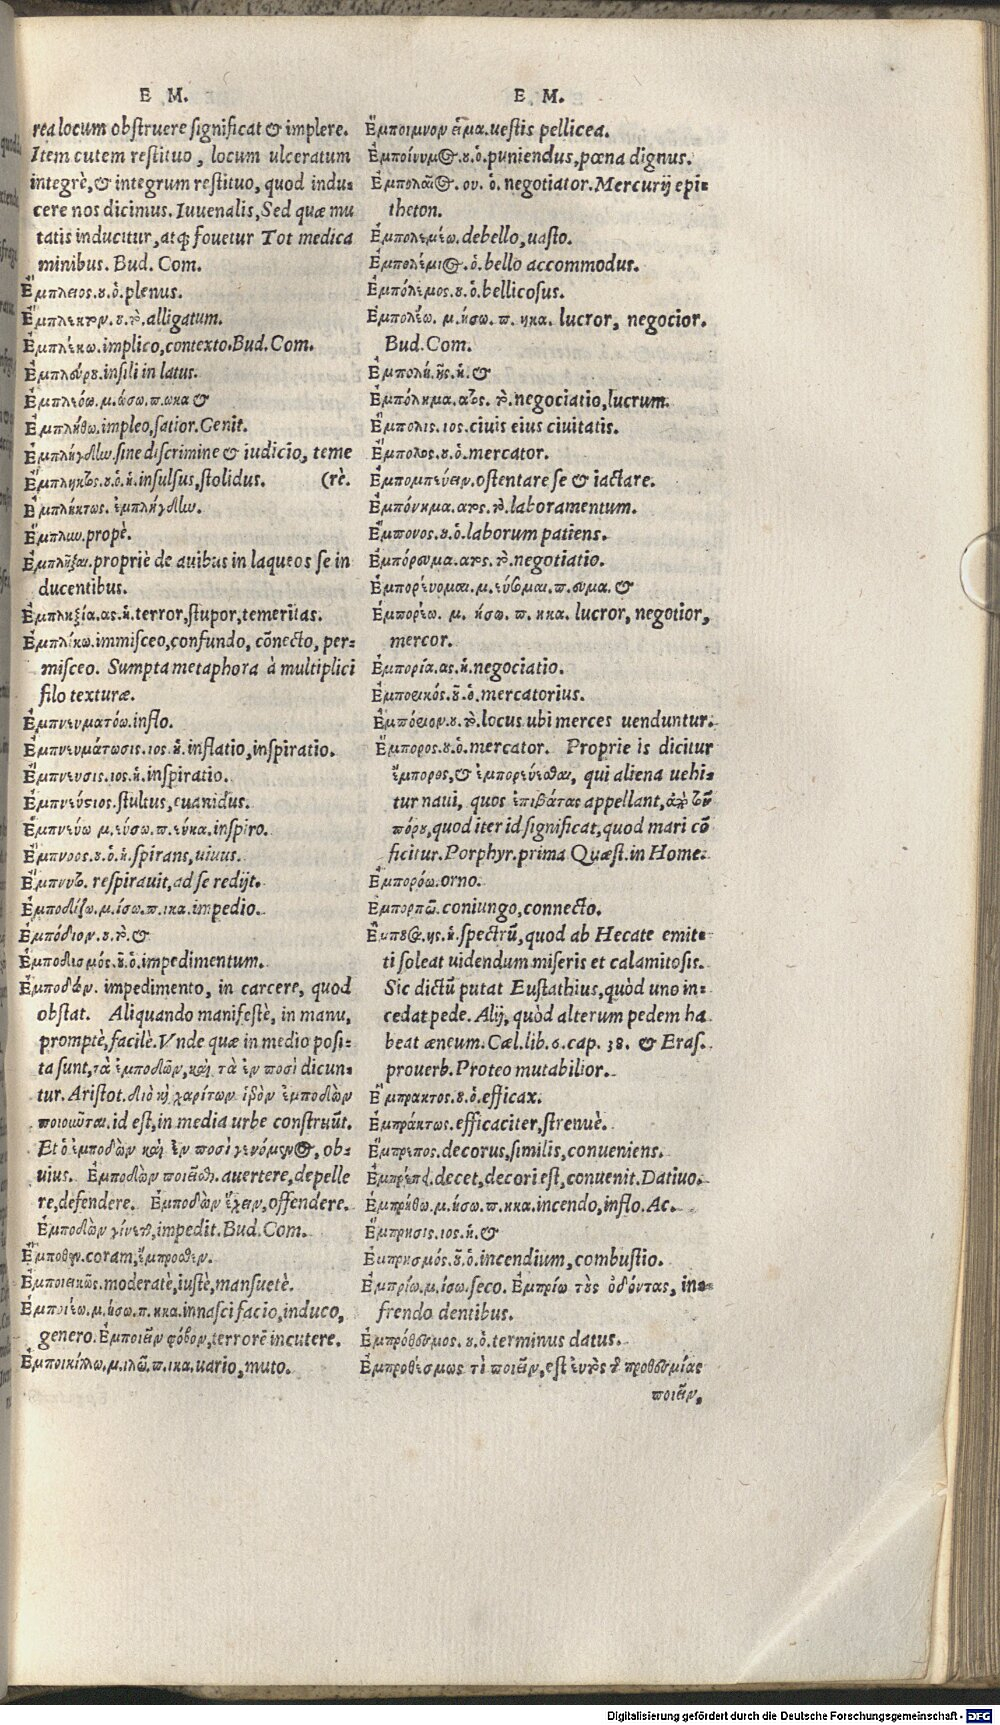 E M.
rea locum obstruere significat & implere.
Item cutem restituo, locum ulceratum
integrè, & integrum restituo, quod indu-
cere nos dicimus. Iuuenalis, Sed quæ mu
tatis inducitur, atq; fouetur Tot medica
minibus. Bud. Com.
Ἔμπλειος.ου.ὁ.plenus.
Ἔμπλεκτον.ου.τὸ.alligatum.
Ἐμπλέκω.implico, contexto.Bud.Com.
insili in latus.
Ἐμπλεόω.μ.ώσω.π.ωκα &
Ἐμπλήθω.impleo, satior.Genit.
Ἐμπλήγδην.sine discrimine & iudicio, teme
Ἔμπληκτος.ου.ὁ.ἡ.insulsus, stolidus. (rè.
Ἐμπλήκτως. ἐμπλήγδην.
Ἔμπλην.propè.
Ἐμπλῆξαι.propriè de auibus in laqueos se in
ducentibus.
Ἐμπληξία.ας.ἡ.terror, stupor, temeritas.
Ἐμπλίκω.immisceo, confundo, cōnecto, per-
misceo. Sumpta metaphora à multiplici
filo texturæ.
Ἐμπνευματόω.inflo.
Ἐμπνευμάτωσις.ιος.ἡ.inflatio, inspiratio.
Ἔμπνευσις.ιος.ἡ.inspiratio.
stultus, euanidus.
Ἐμπνεύω μ.εύσω.π.ευκα.inspiro.
Ἔμπνοος.ου.ὁ.ἡ.spirans, uiuus.
Ἔμπνυτο. respirauit, ad se redijt.
Ἐμποδίζω.μ.ίσω.π.ικα.impedio.
Ἐμπόδιον.ου.τὸ.&
Ἐμποδισμός.οῦ.ὁ.impedimentum.
Ἐμποδών. impedimento, in carcere, quod
obstat. Aliquando manifestè, in manu,
promptè, facilè. Vnde quæ in medio posi-
ta sunt, τὰ ἐμποδὼν, καὶ τὰ ἐν ποσὶ dicun-
tur. Aristot. διὸ καὶ χαρίτων ἱερὸν ἐμποδὼν
ποιοῦνται. id est, in media urbe construūt.
Et ὁ ἐμποδὼν καὶ ἐν ποσὶ γενόμενος, ob-
uius. Ἐμποδὼν ποιεῖσθαι. auertere, depelle
re, defendere. Ἐμποδὼν ἔχειν, offendere.
Ἐμποδὼν γίνεται, impedit. Bud. Com.
Ἔμποθεν.coram, ἔμπροσθεν.
moderatè, iustè, mansuetè.
Ἐμποιέω.μ.ήσω.π.ηκα.innasci facio, induco,
genero. Ἐμποιεῖν φόβον, terrorē incutere.
Ἐμποικίλλω.μ.ιλῶ.π.ικα.uario, muto.
E M.
Ἔμποιμνον εἷμα.uestis pellicea.
Ἐμποίνιμος.ου.ὁ.puniendus, pœna dignus.
Ἐμπολαῖος. ου. ὁ. negotiator. Mercurij epi-
theton.
Ἐμπολεμέω. debello, uasto.
Ἐμπολέμιος.ὁ.bello accommodus.
Ἐμπόλεμος.ου.ὁ.bellicosus.
Ἐμπολέω. μ.ήσω. π. ηκα. lucror, negocior.
Bud. Com.
Ἐμπολή.ῆς.ἡ.&
Ἐμπόλημα.ατος. τὸ.negociatio, lucrum.
Ἔμπολις.ιος.ciuis eius ciuitatis.
Ἔμπολος.ου.ὁ.mercator.
Ἐμπομπεύειν.ostentare se & iactare.
Ἐμπόνημα.ατος.τὸ.laboramentum.
Ἔμπονος.ου.ὁ.laborum patiens.
Ἐμπόρευμα.ατος.τὸ.negotiatio.
Ἐμπορεύομαι.μ.εύσομαι.π.ευμαι.&
Ἐμπορέω. μ. ήσω. π. ηκα. lucror, negotior,
mercor.
Ἐμπορία.ας.ἡ.negociatio.
Ἐμπορικός.οῦ.ὁ.mercatorius.
Ἐμπόριον.ου.τὸ.locus ubi merces uenduntur.
Ἔμπορος.ου.ὁ.mercator. Proprie is dicitur
ἔμπορος, & ἐμπορεύεσθαι, qui aliena uehi-
tur naui, quos ἐπιβάτας appellant, παρὰ τὸν
πόρον, quod iter id significat, quod mari cō
ficitur. Porphyr. prima Quæst. in Home.
Ἐμπορόω.orno.
Ἐμπορπῶ.coniungo, connecto.
Ἔμπουσα.ης.ἡ.spectrū, quod ab Hecate emit-
ti soleat uidendum miseris et calamitosis.
Sic dictū putat Eustathius, quòd uno in-
cedat pede. Alij, quòd alterum pedem ha
beat æneum. Cæl. lib. 6. cap. 38. & Eras.
prouerb. Proteo mutabilior.
Ἔμπρακτος.ου.ὁ.efficax.
Ἐμπράκτως.efficaciter, strenuè.
Ἔμπρεπος.decorus, similis, conueniens.
Ἐμπρέπει.decet, decori est, conuenit. Datiuo.
Ἐμπρήθω.μ.ήσω.π.ηκα.incendo, inflo. Ac.
Ἔμπρησις.ιος.ἡ.&
Ἐμπρησμός.οῦ.ὁ.incendium, combustio.
Ἐμπρίω.μ.ίσω.seco. Ἐμπρίω τοὺς ὀδόντας, in-
frendo dentibus.
Ἐμπρόθεσμος. ου.ὁ.terminus datus.
Ἐμπροθέσμως τὶ ποιεῖν, est ἐντὸς τῆς προθεσμίας
ποιεῖν,
Digitalisierung gefördert durch die Deutsche Forschungsgemeinschaft - DFG